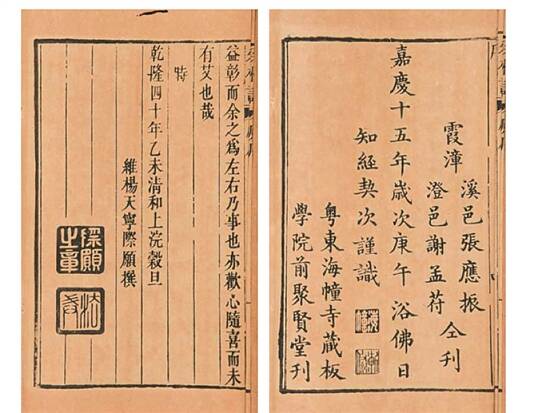 霞漳
溪邑張應振
澄邑謝孟苻
仝刊
嘉慶十五年歲次庚午浴佛日
知經契次謹識
粤東海幢寺藏板
學院前聚賢堂刊
益彰而余之為左右乃事也亦歡心隨喜而未
有艾也哉
時
乾隆四十年乙未清和上浣穀旦
維楊天寧際願撰